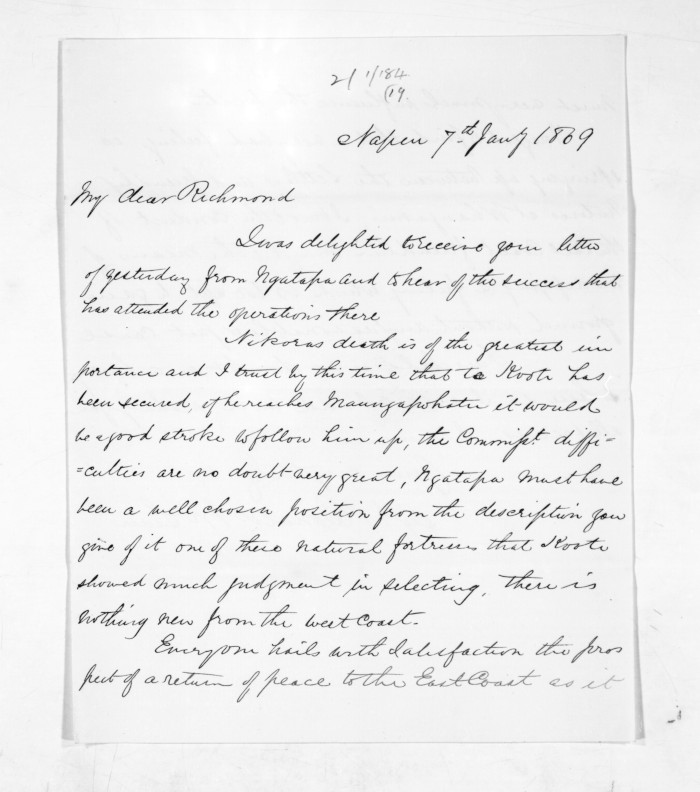 2/ 1/184
(19.
Napier 7th Jany 1869
My dear Richmond
I was delighted to receive your letter
of yesterday from Ngatapa and to hear of the success that
has attended the operations there
Nikoras death is of the greatest im
portance and I trust by this time that te Kooti has
been secured, if he reaches Maungapohatu it would
be a good stroke to follow him up, the Commisst. diffi-
=culties are no doubt very great, Ngatapa must have
been a well chosen position from the description you
give of it one of those natural fortresses that Kooti
showed much judgment in selecting, there is
nothing new from the West Coast.
Everyone hails with satisfaction the pros
pect of a return of peace to the East Coast as it